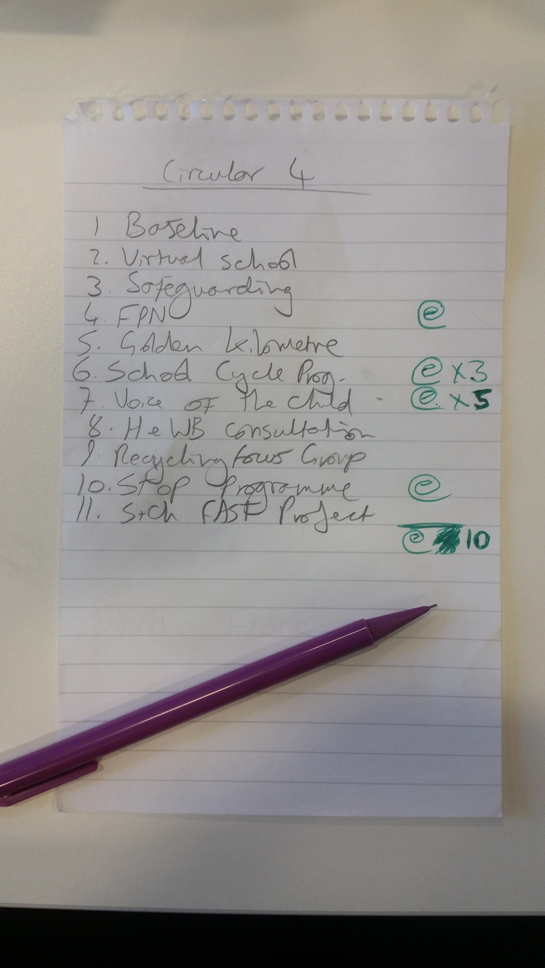 Circular 4
1. Baseline
2. Virtual school
3. Safeguarding
4. FPN @
5. Golden kilometre
6. School Cycle Prog. @ x3
7. Voice of the child - @ x5
8. HeWB consultation
9. Recycling focus Group
10. Stop Programme @
11. Sich FAST Project
@ 10